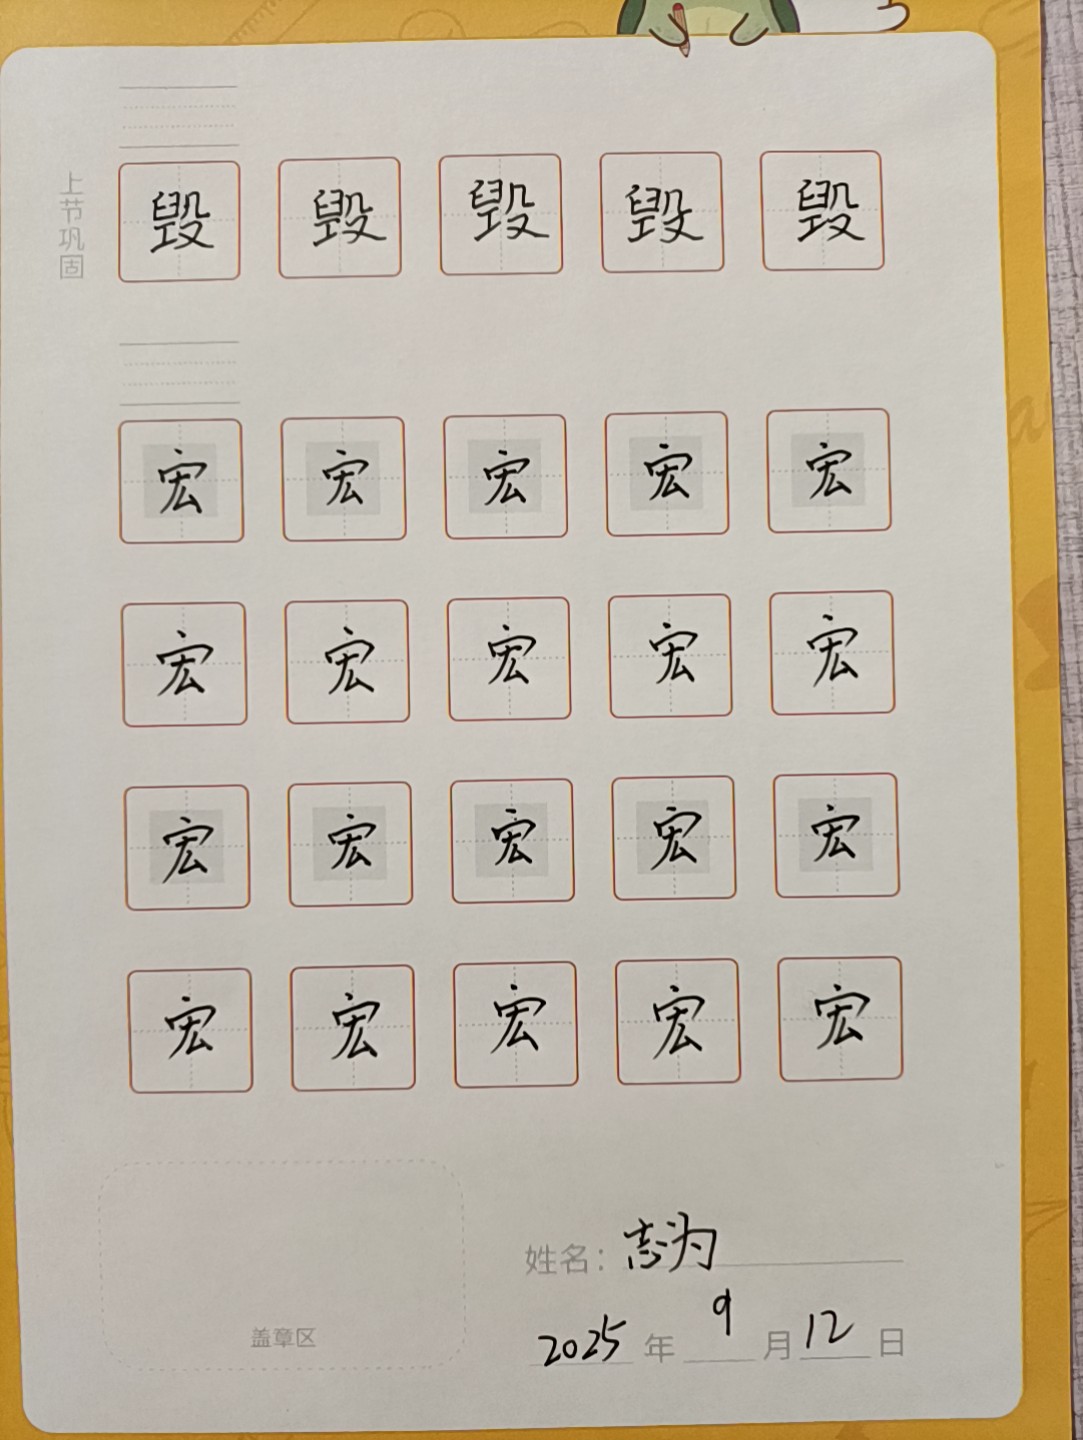 上节巩固
毁 毁 毁 毁 毁
宏 宏 宏 宏 宏
宏 宏 宏 宏 宏
宏 宏 宏 宏 宏
宏 宏 宏 宏 宏
姓名：志为
盖章区
2025 年 9 月 12 日